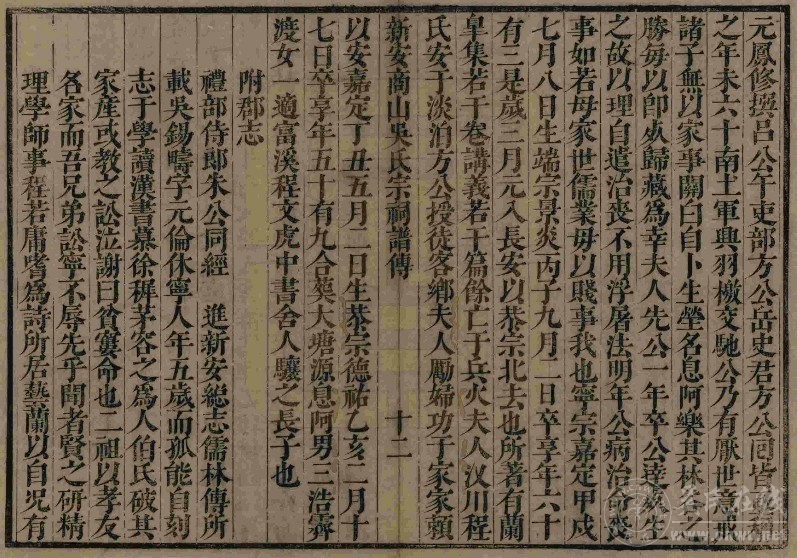 元鳳修撰呂公午吏部方公岳史君方公同皆
之年未六十南土軍興羽檄交馳公乃有厭世意戒
諸子無以家事關白自卜生塋名息阿樂其林谷之
勝每以即此歸藏為幸夫人先公一年卒公達死生
之故以理自遣治喪不用浮屠法明年公病治命喪
事如若母家世儒業毋以賤事我也寧宗嘉定甲戌
七月八日生端宗景炎丙子九月二日卒享年六十
有三是歲三月元入長安以恭宗北去也所著有蘭
皐集若干卷講義若干篇餘亡于兵火夫人汊川程
氏安于淡泊方公授徒客鄉夫人勵婦功于家家賴
新安商山吳氏宗祠譜傳 十二
以安嘉定丁丑五月二日生恭宗德祐乙亥二月十
七日卒享年五十有九合葬大塘源息阿男三浩霽
渡女一適富溪程文虎中書舍人驤之長子也
附郡志
禮部侍郎朱公同經 進新安總志儒林傳所
載吳錫疇字元倫休寧人年五歲而孤能自刻
志于學讀漢書慕徐穉茅容之為人伯氏破其
家產或教之訟泣謝曰貧窶命也二祖以孝友
名家而吾兄弟訟寧不辱先乎聞者賢之研精
理學師事程若庸嗜為詩所居藝蘭以自況有